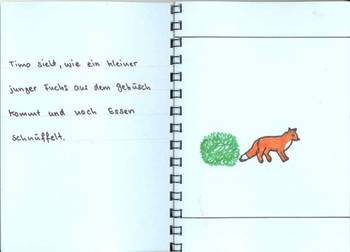 Timo sieht, wie ein kleiner
junger Fuchs aus dem gebüsch
kommt und nach Essen
schnüffelt.